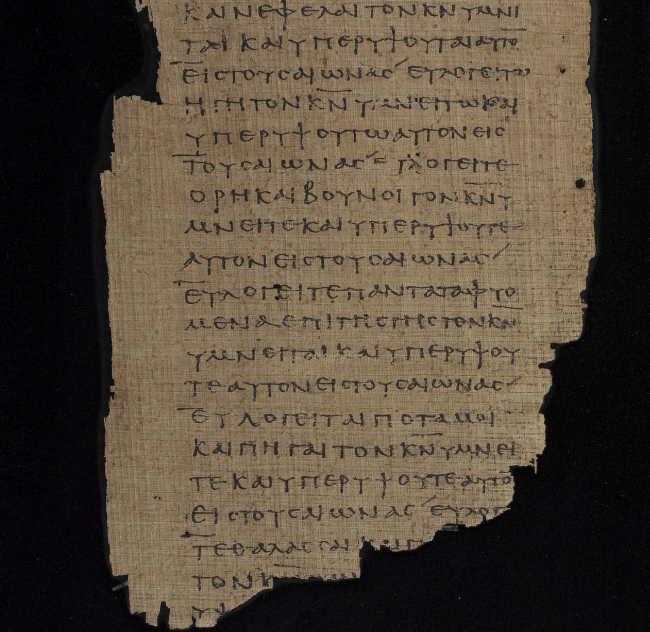 ΚΑΙ ΝΕΦΕΛΑΙ ΤΟΝ Κ̅Ν̅ ΥΜΝΙ
ΤΑΙ ΚΑΙ ΥΠΕΡΥΨΟΥΤΑΙ ΑΥΤΟ̅
ΕΙΣ ΤΟΥΣ ΑΙΩΝΑΣ ⁄ ΕΥΛΟΓΕΙΤΩ
Η ΓΗ ΤΟΝ Κ̅Ν̅ ΥΜΝΕΙΤΩ ΚΑΙ
ΥΠΕΡΥΨΟΥΤΩ ΑΥΤΟΝ ΕΙΣ
ΤΟΥΣ ΑΙΩΝΑΣ ⁄ ΕΥΛΟΓΕΙΤΕ
ΟΡΗ ΚΑΙ ΒΟΥΝΟΙ ΤΟΝ Κ̅Ν̅ Υ
ΜΝΕΙΤΕ ΚΑΙ ΥΠΕΡΥΨΟΥΤΕ
ΑΥΤΟΝ ΕΙΣ ΤΟΥΣ ΑΙΩΝΑΣ ⁄
ΕΥΛΟΓΕΙΤΕ ΠΑΝΤΑ ΤΑ ΦΥΟ
ΜΕΝΑ ΕΠΙ ΤΗΣ ΓΗΣ ΤΟΝ Κ̅Ν̅
ΥΜΝΕΙΤΑΙ ΚΑΙ ΥΠΕΡΥΨΟΥ
ΤΕ ΑΥΤΟΝ ΕΙΣ ΤΟΥΣ ΑΙΩΝΑΣ ⁄
ΕΥΛΟΓΕΙΤΑΙ ΠΟΤΑΜΟΙ
ΚΑΙ ΠΗΓΑΙ ΤΟΝ Κ̅Ν̅ ΥΜΝΕΙ
ΤΕ ΚΑΙ ΥΠΕΡΥΨΟΥΤΕ ΑΥΤΟ̅
ΕΙΣ ΤΟΥΣ ΑΙΩΝΑΣ ⁄ ΕΥΛΟΓ
ΤΕ ΘΑΛΑΣΣΑΙ ΚΑΙ Π
ΤΟΝ Κ
ΥΨ